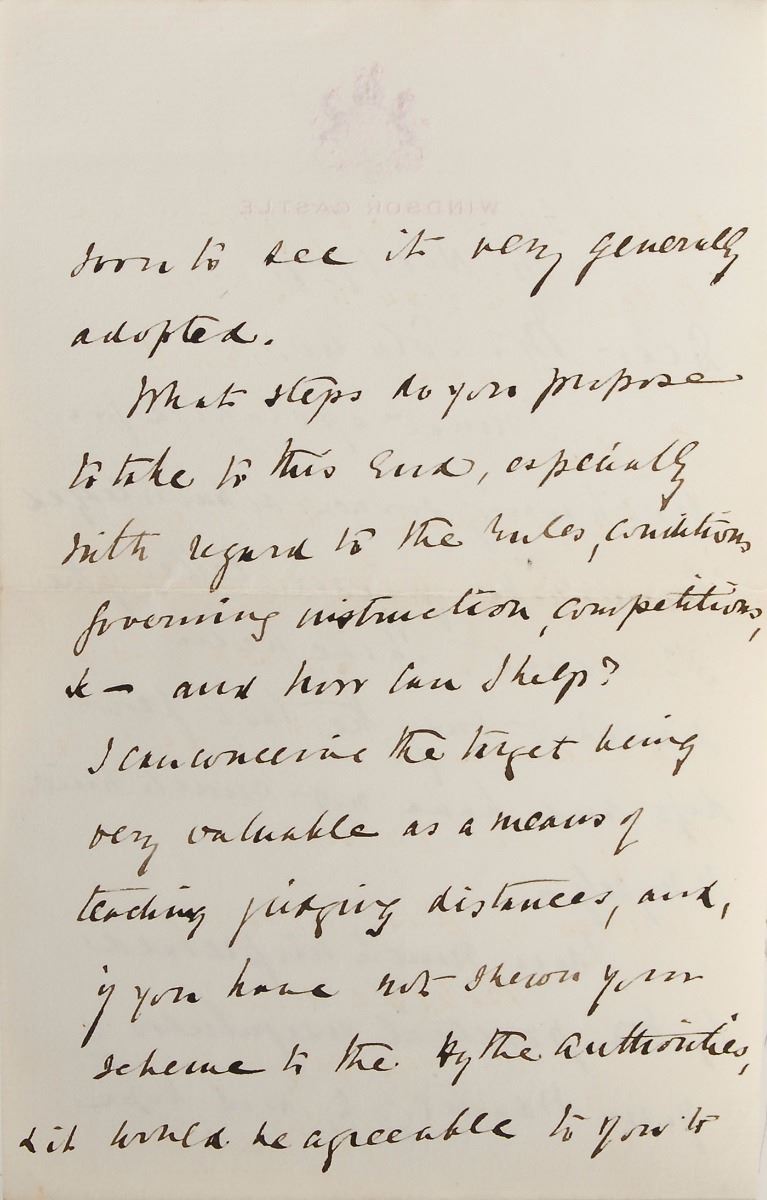 WINDSOR CASTLE
soon to see it very generally
adopted.
What steps do you propose
to take to this End, especially
with regard to the rules, conditions
governing instruction, competitions,
&c — and how can I help?
I can conceive the target being
very valuable as a means of
teaching judging distances, and,
if you have not shewn your
scheme to the Hythe Authorities,
& it would be agreeable to you to